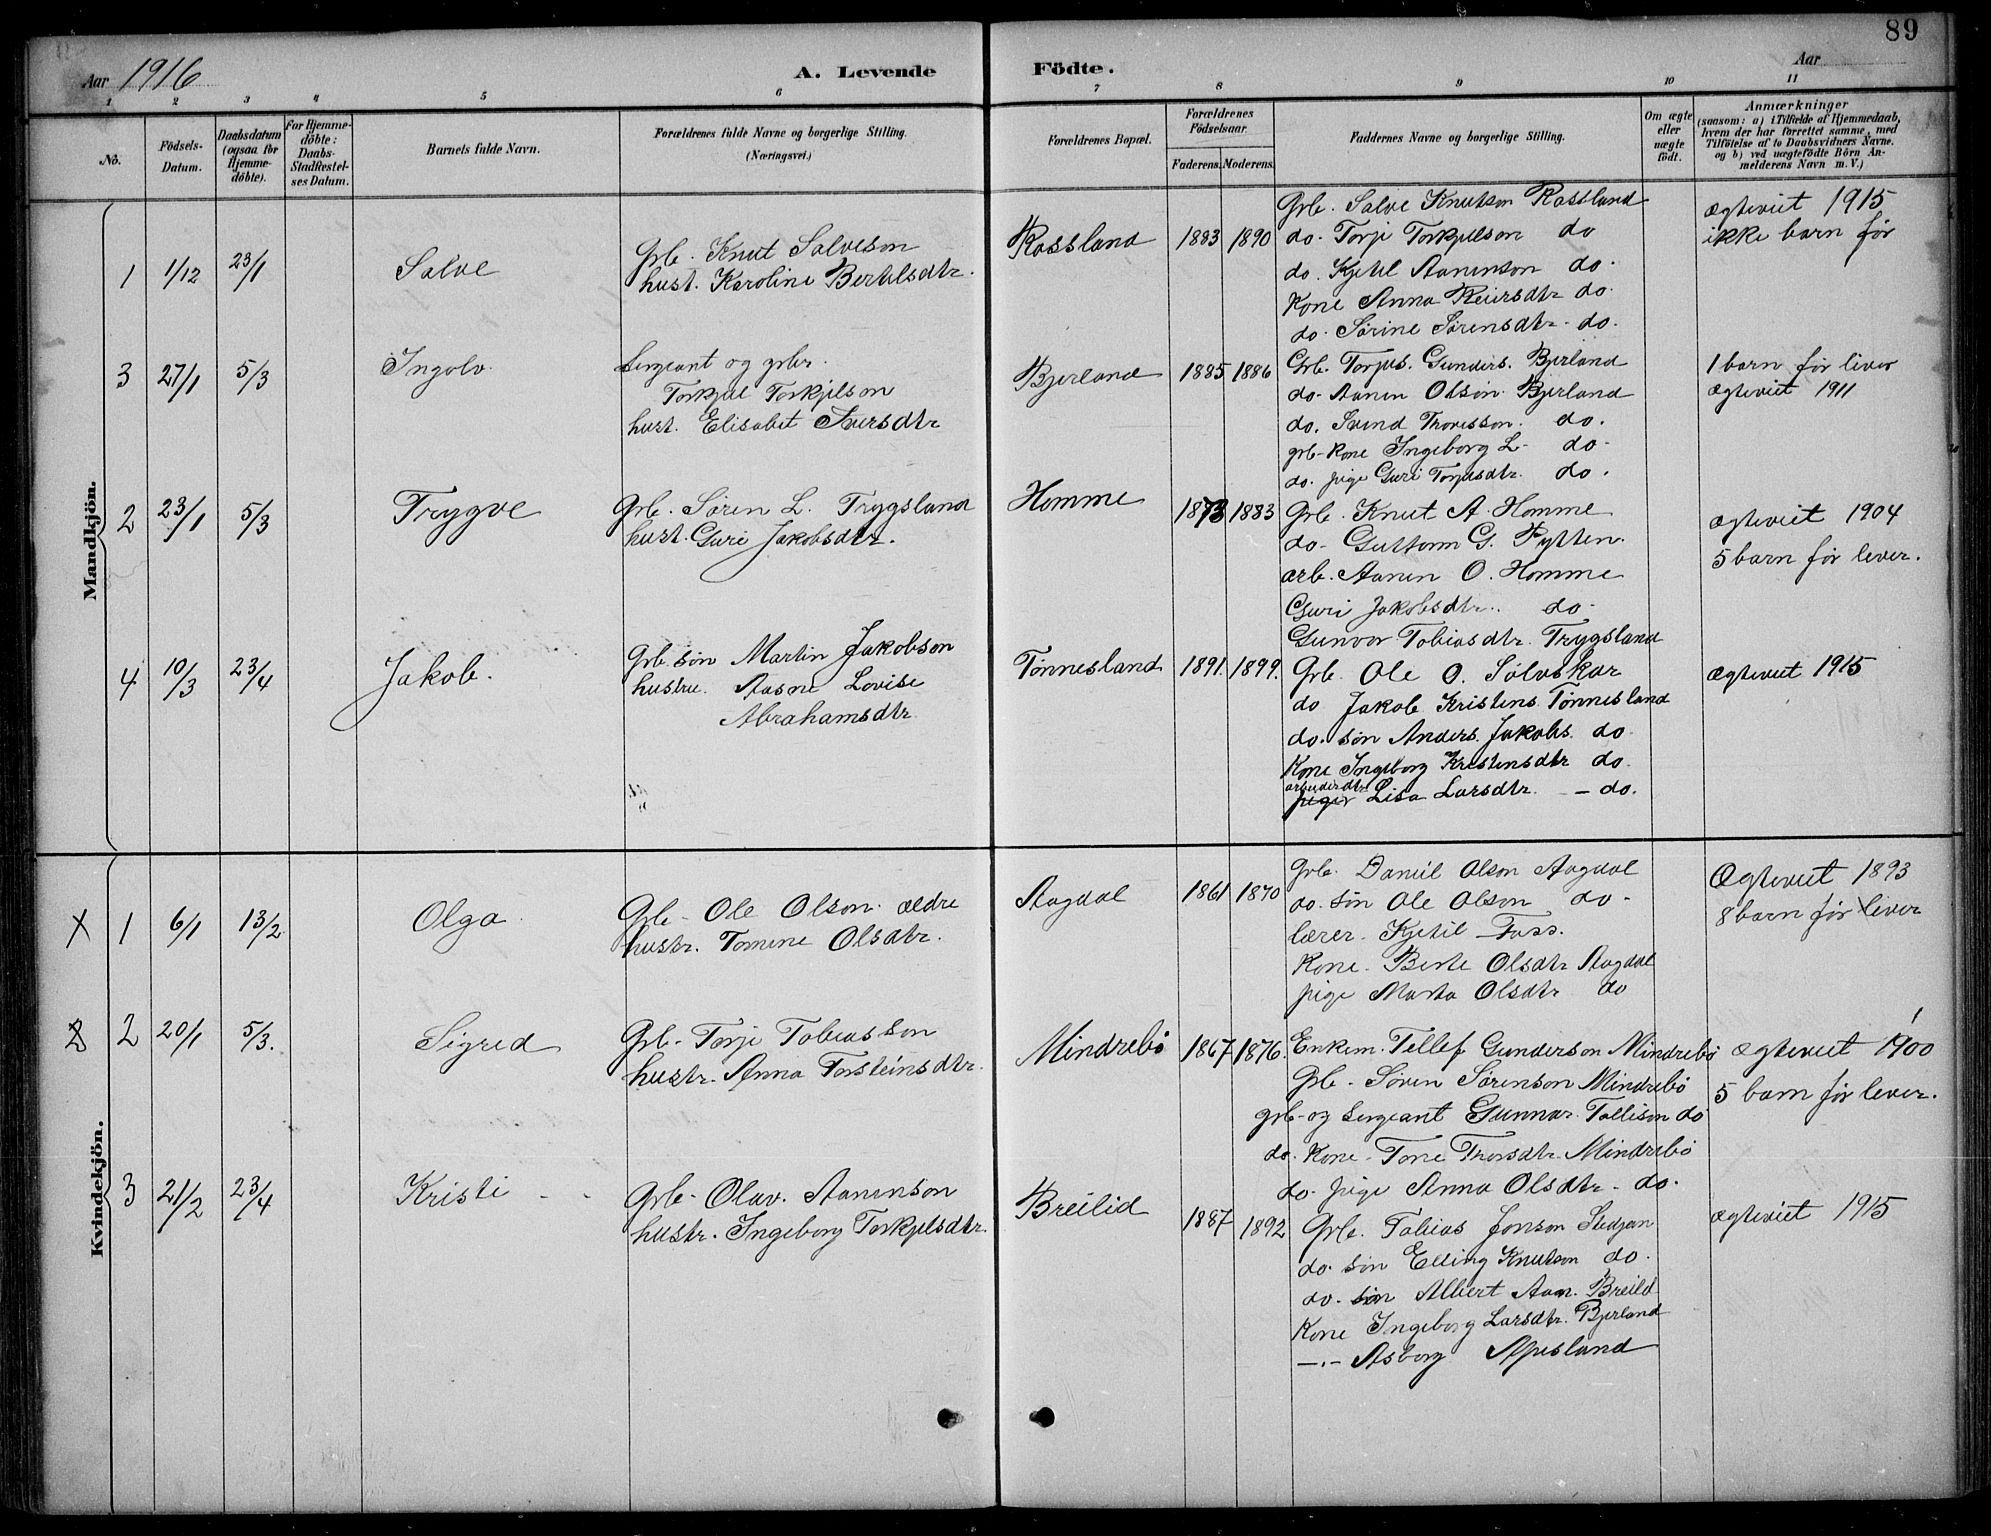 89
Aar 1916
A. Levende Födte.
Aar
1 2 3 4 5 6 7 8 9 10 11
No.
Födsels-Datum.
Daabsdatum (ogsaa for Hjemme-döbte).
For Hjemme-döbte: Daabs-Stadfæstel-ses Datum.
Barnets fulde Navn.
Forældrenes fulde Navne og borgerlige Stilling.
(Næringsvei.)
Forældrenes Bopæl.
Forældrenes Födselsaar.
Faderens. Moderens.
Faddernes Navne og borgerlige Stilling.
Om ægte eller uægte födt.
Anmærkninger
(saasom: a) i Tilfælde af Hjemmedaab,
hvem der har forrettet samme, med
Tilföielse af to Daabsvidners Navne.
og b) ved uægtefödte Börn An-
melderens Navn m. V.)
Mandkjön.
1 1/12 23/1 Salve
Grb. Knut Salveson
hust. Karoline Bertelsdtr.
Rossland 1883 1890
Grb. Salve Knutson Rossland
do. Torje Torkjelson do
do. Kjetil Aanenson do.
Kone Anna Reiersdtr do.
do. Sørine Sørensdtr. do.
ægteviet 1915
ikke barn før
3 27/1 5/3 Ingolv.
Sergeant og grbr.
Torkjel Torkjelson
hust. Elisabet Iversdtr
Bjerland 1885 1886
Grb. Torjus. Gunders. Bjerland
do. Aanen Olson. Bjerland
do. Svend Thorisson. do.
grb. kone Ingeborg L. do.
do. pige Guri Torjusdtr. do.
1 barn før lever
ægteviet 1911
2 23/1 5/3 Trygve
Grb. Søren L. Trygsland
hust. Guri Jakobsdtr.
Homme 1873 1883
Grb. Knut A. Homme
do. Guttorm G. Pytten.
arb. Aanen O. Homme
Guri Jakobsdtr. do.
Gunvor Tobiasdtr. Trygsland
ægteviet 1904
5 barn før lever.
4 10/3 23/4 Jakob.
Grb. søn Martin Jakobson
hustru. Aasne Lovise
Abrahamsdtr
Tønnesland 1891. 1899.
Grb. Ole O. Sølvskar
do Jakob Kristens. Tønnesland
do. søn Anders Jakobs. do.
Kone Ingeborg Kristensdtr do.
arbeiderdtr
Lisa Larsdtr. - do.
ægteviet 1915
Kvindekjön.
X 1 6/1 13/2 Olga
Grb. Ole Olson. ældre
hustr. Tomine Olsdtr.
Aagdal 1861 1870
Grb. Daniel Olson Aagdal
do. søn Ole Olson do.
lærer. Kjetil Foss.
Kone. Berte Olsdtr Aagdal
pige Marta Olsdtr do
Ægteviet 1893
8 barn før lever
2 2 20/1 5/3. Sigred
Grb. Torje Tobiasson
hustr. Anna Torsteinsdtr.
Mindrebø 1867 1876.
Enkem. Tellef Gunderson Mindrebø
Grb. Søren Sørenson Mindrebø
grb. og Sergeant Gunnar Tallison do
do. Kone. Tone Thorsdtr. Mindrebø
do. pige Anna Olsdtr. do.
ægteviet 1900
5 barn før lever.
3 21/2 23/4 Kristi
Grb. Olav. Aanenson
hustr. Ingeborg Torkjelsdtr.
Breilid 1887 1892
Grb. Tobias Jonson Stedjan
do. søn Elling Knutson do.
do. søn Albert Aan. Breild
Kone Ingeborg Larsdtr. Bjerland
-.- Asborg Apesland
ægteviet 1915